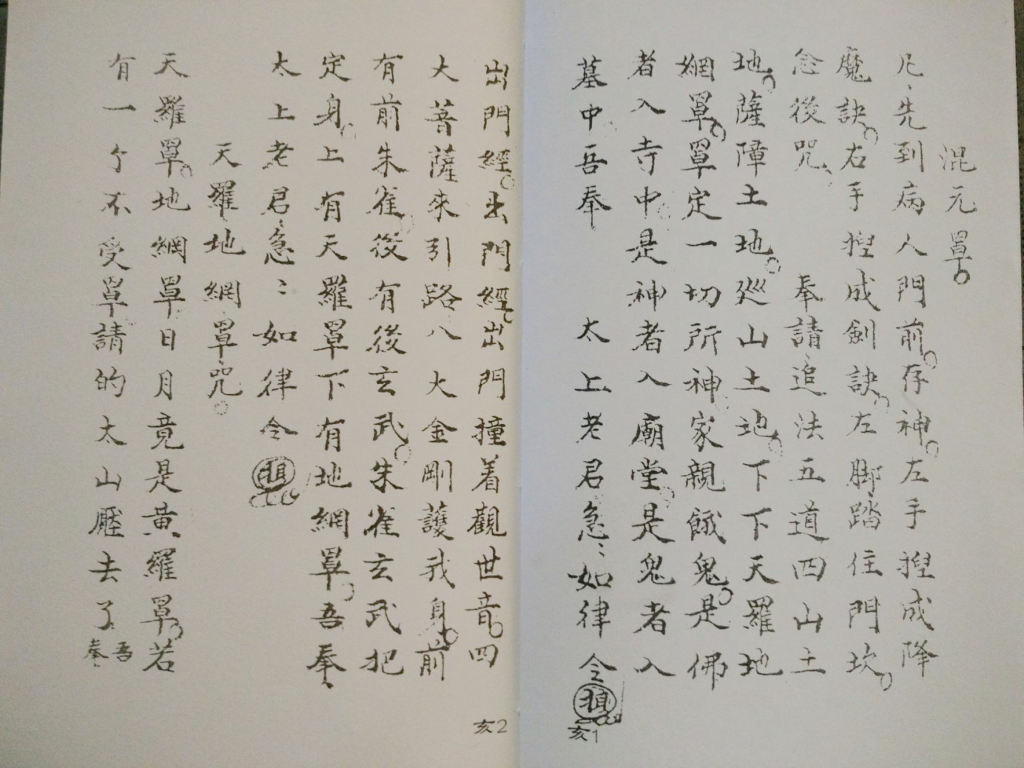 混元罩
凡先到病人門前存神左手揑成降
魔訣右手揑成劍訣左脚踏住門坎
念後咒 奉請追法五道四山土
地薩障土地廵山土地下下天羅地
網罩罩定一切所神家親餓鬼是佛
者入寺中是神者入廟堂是鬼者入
墓中吾奉 太上老君急〻如律令
亥1
出門經出門經出門撞着觀世音四
大菩薩來引路八大金剛護我身前
有前朱雀後有後玄武朱雀玄武把
定身上有天羅罩下有地網罩吾奉
太上老君急〻如律令
天羅地網罩咒
天羅罩地網罩日月竟是黄羅罩若
有一个不受罩請的太山壓去了吾奉
亥2